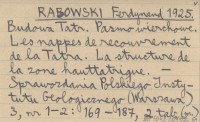 RABOWSKI Ferdynand 1925.
Budowa Tatr. Pasmo wierchowe.
Les nappes de recouvrement
de la Tatra. La structure de
la zone hauttatrique.
Sprawozdania Polskiego Insty-
tutu Geologicznego (Warszawa)
3, nr 1-2: 169-187, 2 tabl.